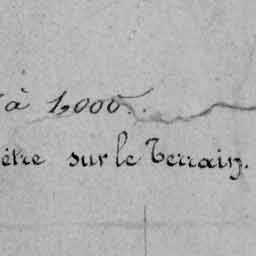 à 1,000.
être sur le Terrain.